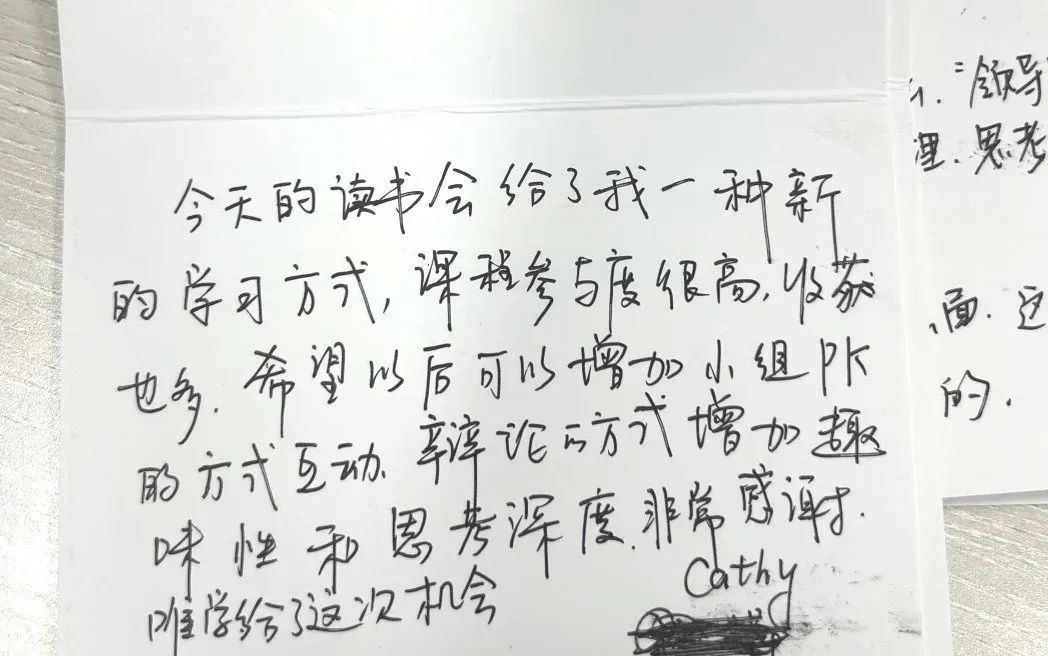 今天的读书会给了我一种新
的学习方式,课程参与度很高,收获
也多.希望以后可以增加小组PK
的方式互动.辩论的方式增加趣
味性和思考深度.非常感谢.
唯学给了这次机会
Cathy
"领导
理.思考
面.这
的.